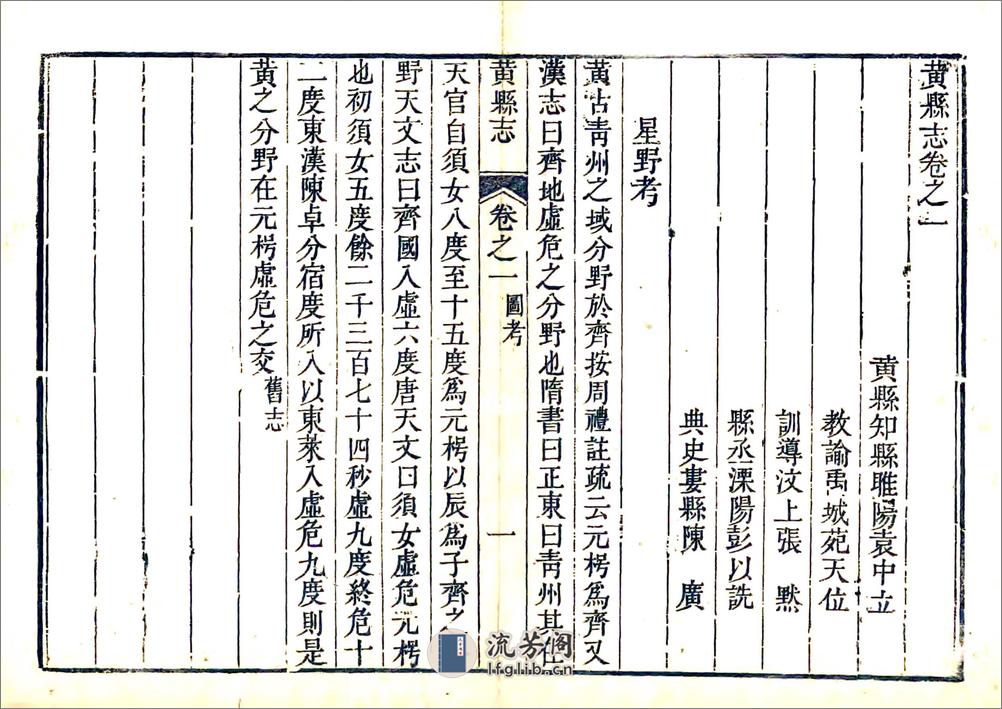 黃縣志卷之一
黃縣知縣睢陽袁中立
教諭禹城苑天位
訓導汶上張　默
縣丞溧陽彭以詵
典史婁縣陳　廣
星野考
黃古青州之域分野於齊按周禮註疏云元枵爲齊又
漢志曰齊地虛危之分野也隋書曰正東曰青州其在
黃縣志
卷之一
圖考
一
天官自須女八度至十五度爲元枵以辰爲子齊之
野天文志曰齊國入虛六度唐天文曰須女虛危元枵
也初須女五度餘二千三百七十四秒虛九度終危十
二度東漢陳卓分宿度所入以東萊入虛危九度則是
黃之分野在元枵虛危之交舊志
流芳阁
lfglib.cn